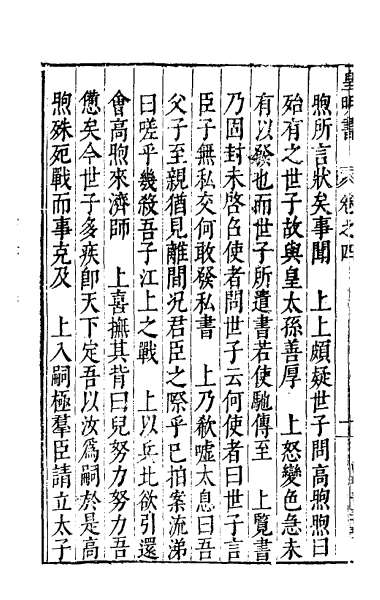 皇明書 卷之四
煦所言狀矣事聞 上上頗疑世子問高煦煦曰
殆有之世子故與皇太孫善厚 上怒變色急未
有以發也而世子所遣書若使馳傳至 上覽書
乃固封未啓召使者問世子云何使者曰世子言
臣子無私交何敢發私書 上乃欷噓太息曰吾
父子至親猶見離間况君臣之際乎已拍案流涕
曰嗟乎幾殺吾子江上之戰 上以兵北欲引還
會高煦來濟師 上喜撫其背曰兒努力努力吾
憊矣今世子多疾卽天下定吾以汝爲嗣於是高
煦殊死戰而事克及 上入嗣極羣臣請立太子